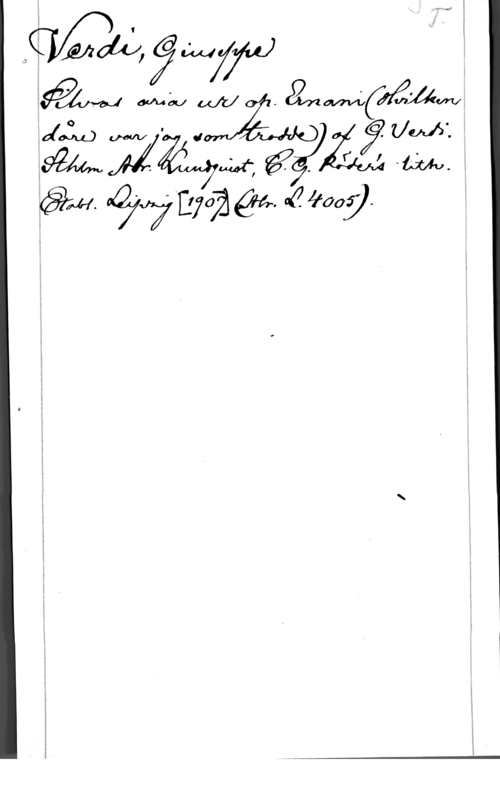 T.
Verdi, Giuseppe
Silvas aria ur op. Ernani (Hvilken
dåre var jag, som trodde) af G. Verdi.
Sthlm Abr. Lundquist, C. G. Röder's lith.
Etabl. Leipzig [190?] (Abr. L. 4005).